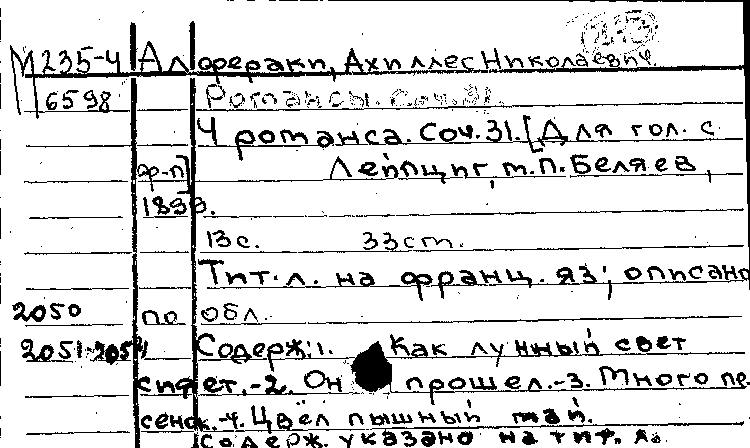 М 235-4 Алфераки, Ахиллес Николаевич.
6598 Романсы. Соч. 31.
4 романса. Соч. 31. [Для гол. с
ф-п] Лейпциг, М.П. Беляев,
13 с. 33 cm.
Тит. л. на франц. яз; описано
2050 по обл.
2051-2054 Содерж: 1. Как лунный свет
сияет.-2. Он прошел.-3. Много пе
сенок.-4. Цвёл пышный май.
Содерж. указано на тит. л.